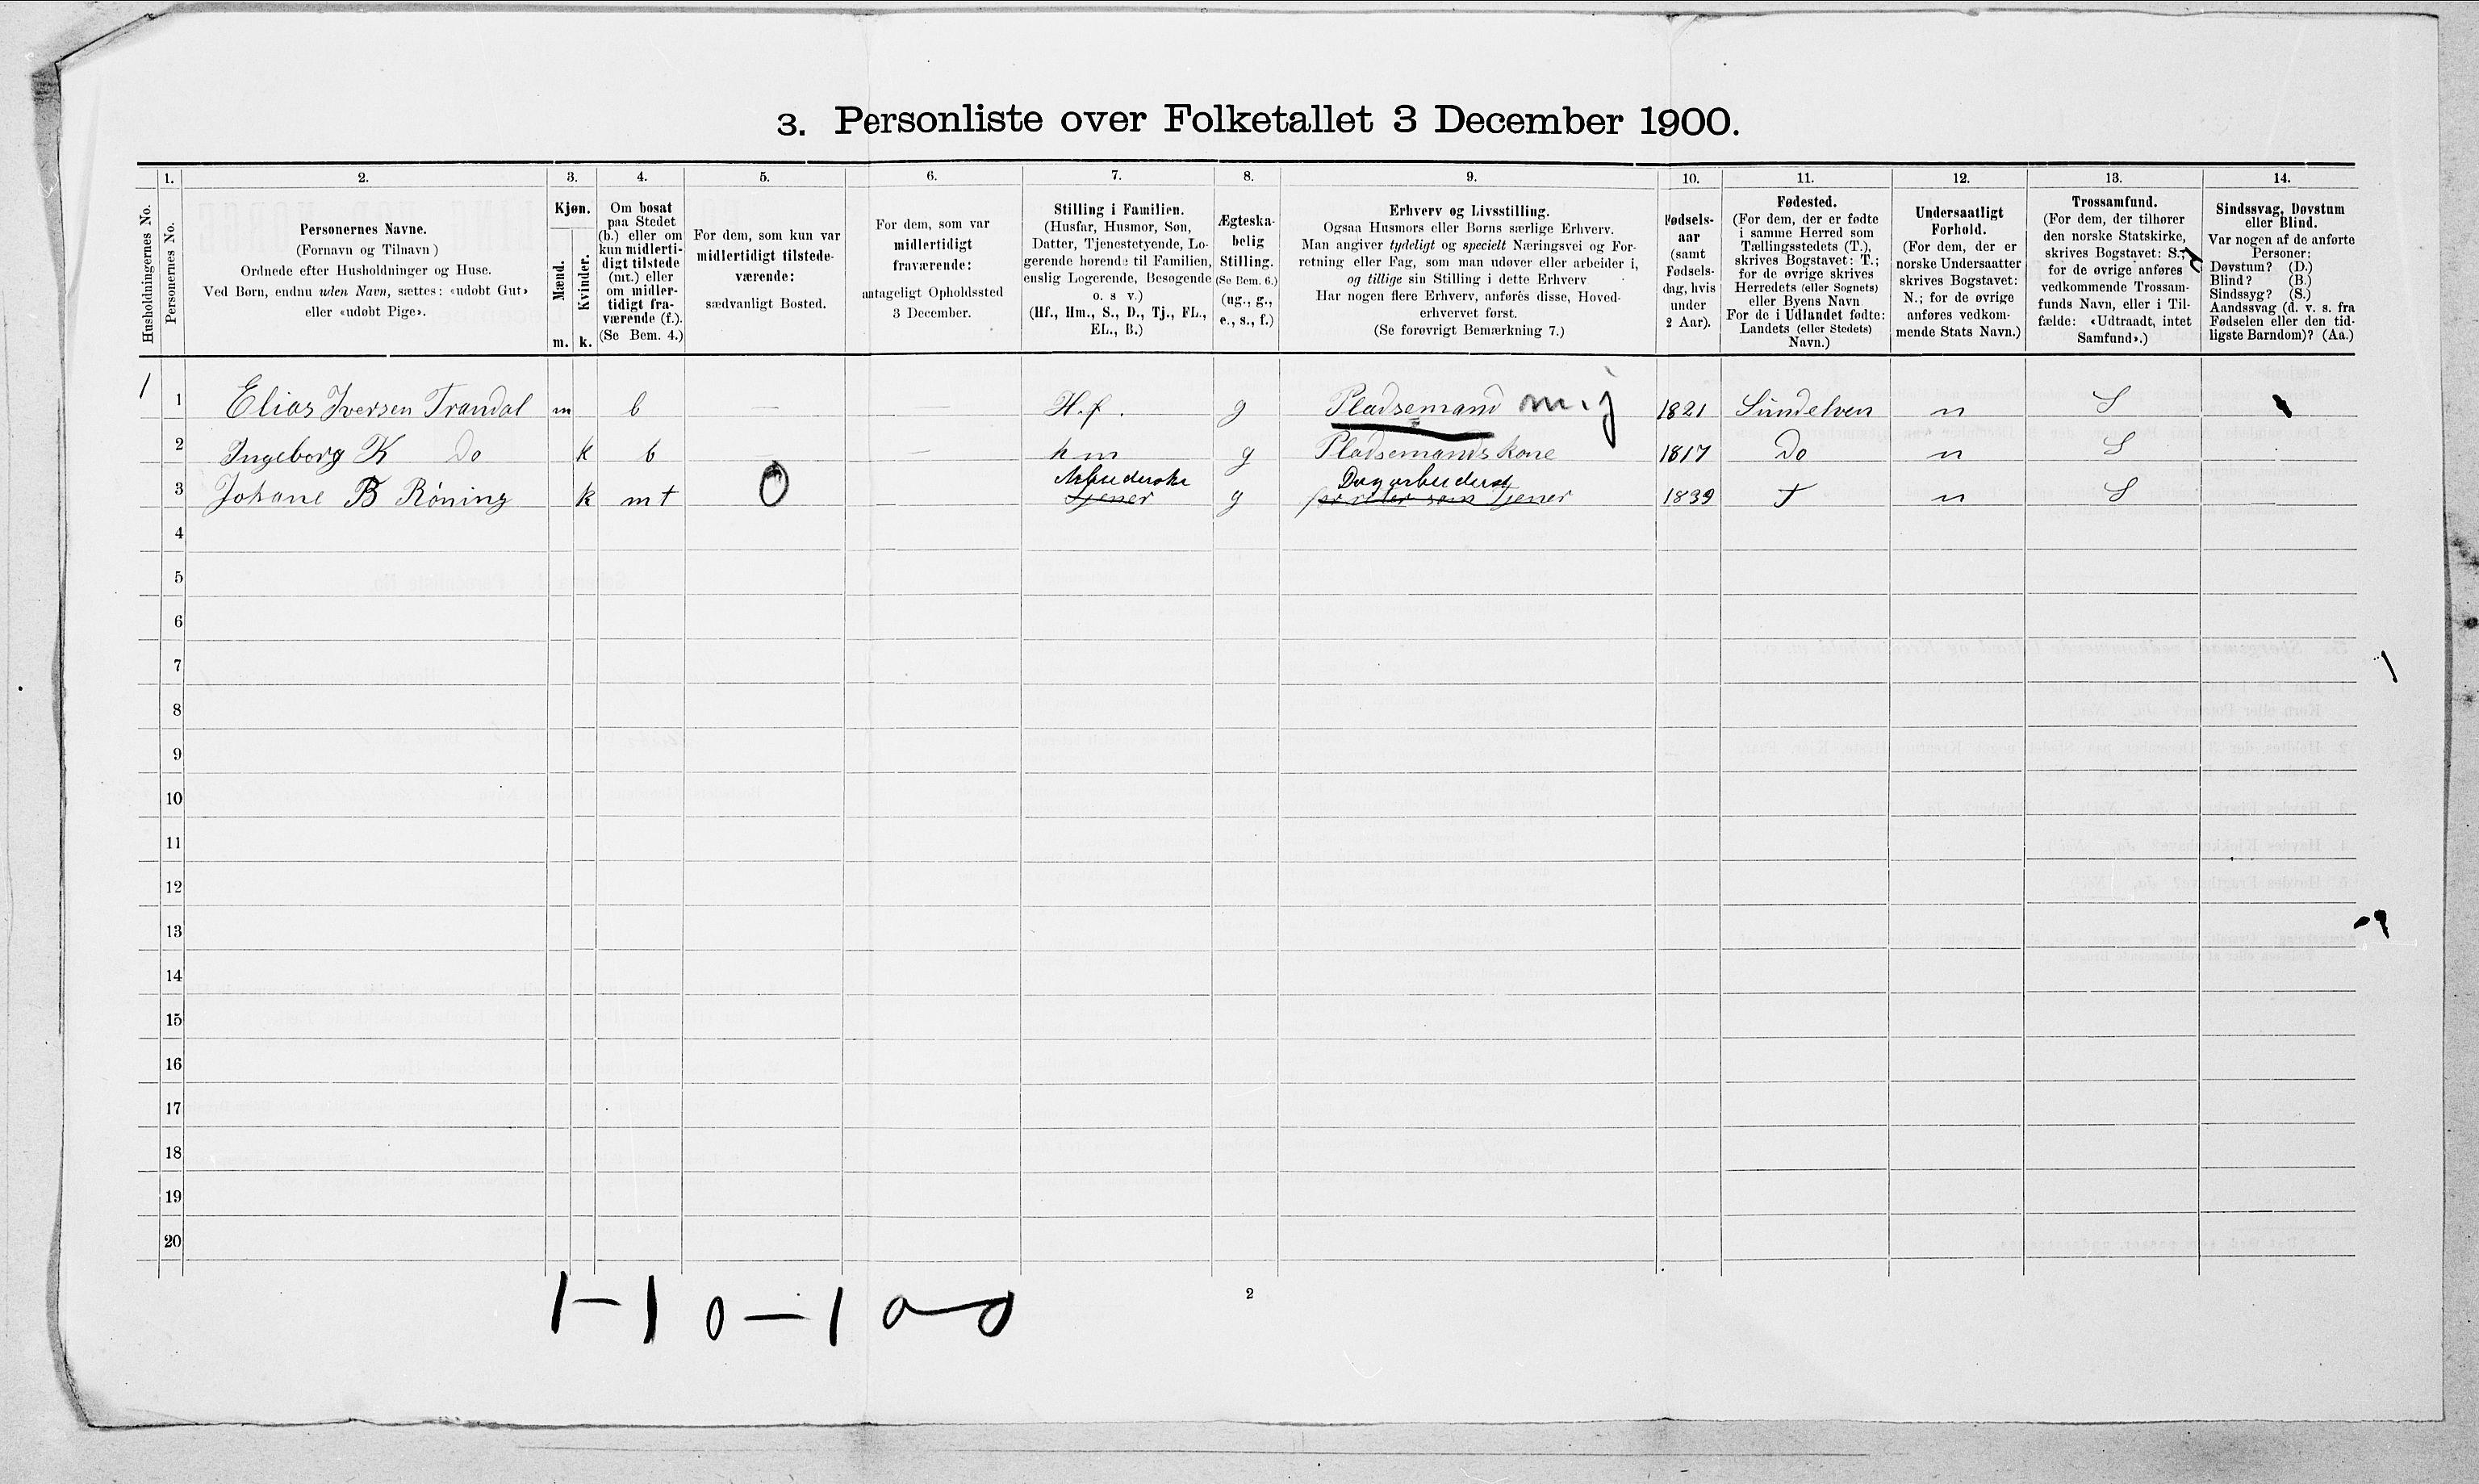 3. Personliste over Folketallet 3 December 1900.
1. 2. 3. 4. 5. 6. 7. 8. 9. 10. 11. 12. 13. 14.
Husholdningernes No.
Personernes No.
Personernes Navne.
(Fornavn og Tilnavn)
Ordnede efter Husholdninger og Huse.
Ved Børn, endnu uden Navn, sættes: «udøbt Gut»
eller «udøbt Pige».
Kjøn.
Mænd.
Kvinder.
m. k.
Om bosat
paa Stedet
(b.) eller om
kun midlerti-
digt tilstede
(mt.) eller
om midler-
tidigt fra-
værende (f.).
(Se Bem. 4.)
For dem, som kun var
midlertidigt tilstede-
værende:
sædvanligt Bosted.
For dem, som var
midlertidigt
fraværende:
antageligt Opholdssted
3 December.
Stilling i Familien.
(Husfar, Husmor, Søn,
Datter, Tjenestetyende, Lo-
gerende hørende til Familien,
enslig Logerende, Besøgende
o. s v.)
(Hf., Hm., S., D., Tj., FL.,
EL., B.)
Ægteska-
belig
Stilling.
(Se Bem. 6.)
(ug., g.,
e., s., f.)
Erhverv og Livsstilling.
Ogsaa Husmors eller Børns særlige Erhverv.
Man angiver tydeligt og specielt Næringsvei og For-
retning eller Fag, som man udøver eller arbeider i,
og tillige sin Stilling i dette Erhverv
Har nogen flere Erhverv, anføres disse, Hoved-
erhvervet først.
(Se forøvrigt Bemærkning 7.)
Fødsels-
aar
(samt
Fødsels-
dag, hvis
under
2 Aar).
Fødested.
(For dem, der er fødte
i samme Herred som
Tællingsstedets (T.),
skrives Bogstavet: T.;
for de øvrige skrives
Herredets (eller Sognets)
eller Byens Navn
For de i Udlandet fødte:
Landets (eller Stedets)
Navn.)
Undersaatligt
Forhold.
(For dem, der er
norske Undersaatter
skrives Bogstavet:
N.; for de øvrige
anføres vedkom-
mende Stats Navn.)
Trossamfund.
(For dem, der tilhører
den norske Statskirke,
skrives Bogstavet: S.;
for de øvrige anføres
vedkommende Trossam-
funds Navn, eller i Til-
fælde: «Udtraadt, intet
Samfund».)
Sindssvag, Døvstum
eller Blind.
Var nogen af de anførte
Personer:
Døvstum? (D.)
Blind? (B.)
Sindssyg? (S.)
Aandssvag (d. v. s. fra
Fødselen eller den tid-
ligste Barndom)? (Aa.)
1 1 Elias Iversen Trandal m b — — H.f. g Pladsemand m.j 1821 Sündelven n S
2 Ingeborg K Do k b — — hm g Pladsemands kone 1817 Do n S
Arbeiderske Dagarbeiderst
3 Johane B Røning k mt 0 Tjener g som Tjener 1839 T n S
4
5
6
7
8
9
10
11
12
13
14
15
16
17
18
19
20
1–1 0–1 0–0
2